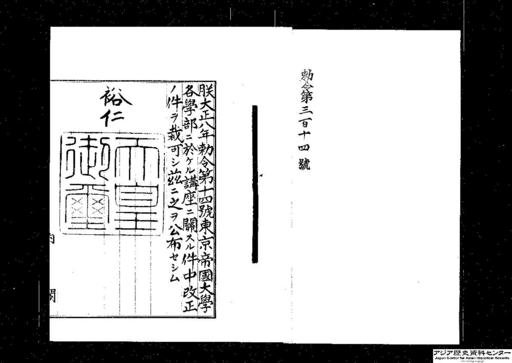 勅令第三百十四號
朕大正八年勅令第十四號東京帝國大學
各學部ニ於ケル講座ニ關スル件中改正
ノ件ヲ裁可シ茲ニ之ヲ公布セシム
裕仁
天皇御璽
内閣
アジア歴史資料センター
Japan Center for Asian Historical Records